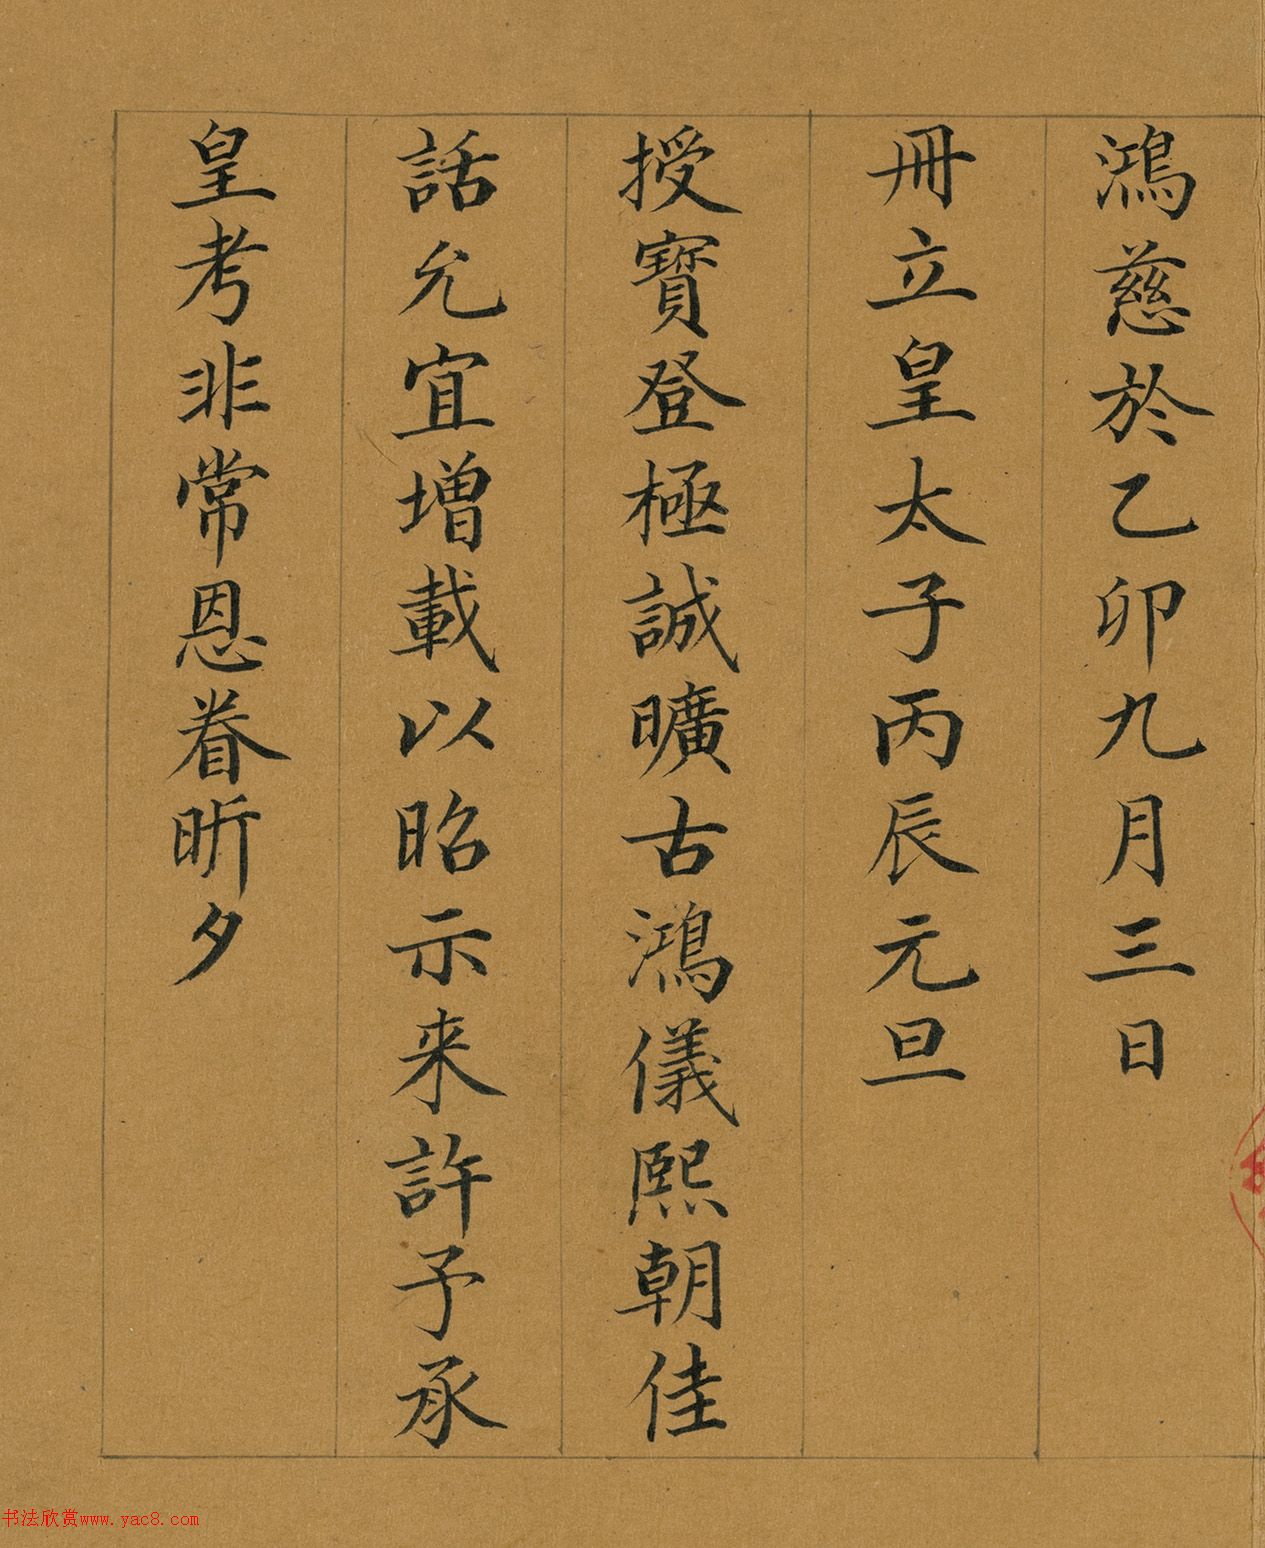 鴻慈於乙卯九月三日
冊立皇太子丙辰元旦
授寶登極誠曠古鴻儀熙朝佳
話允宜增載以昭示来許予承
皇考非常恩眷昕夕
书法欣赏www.yac8.com